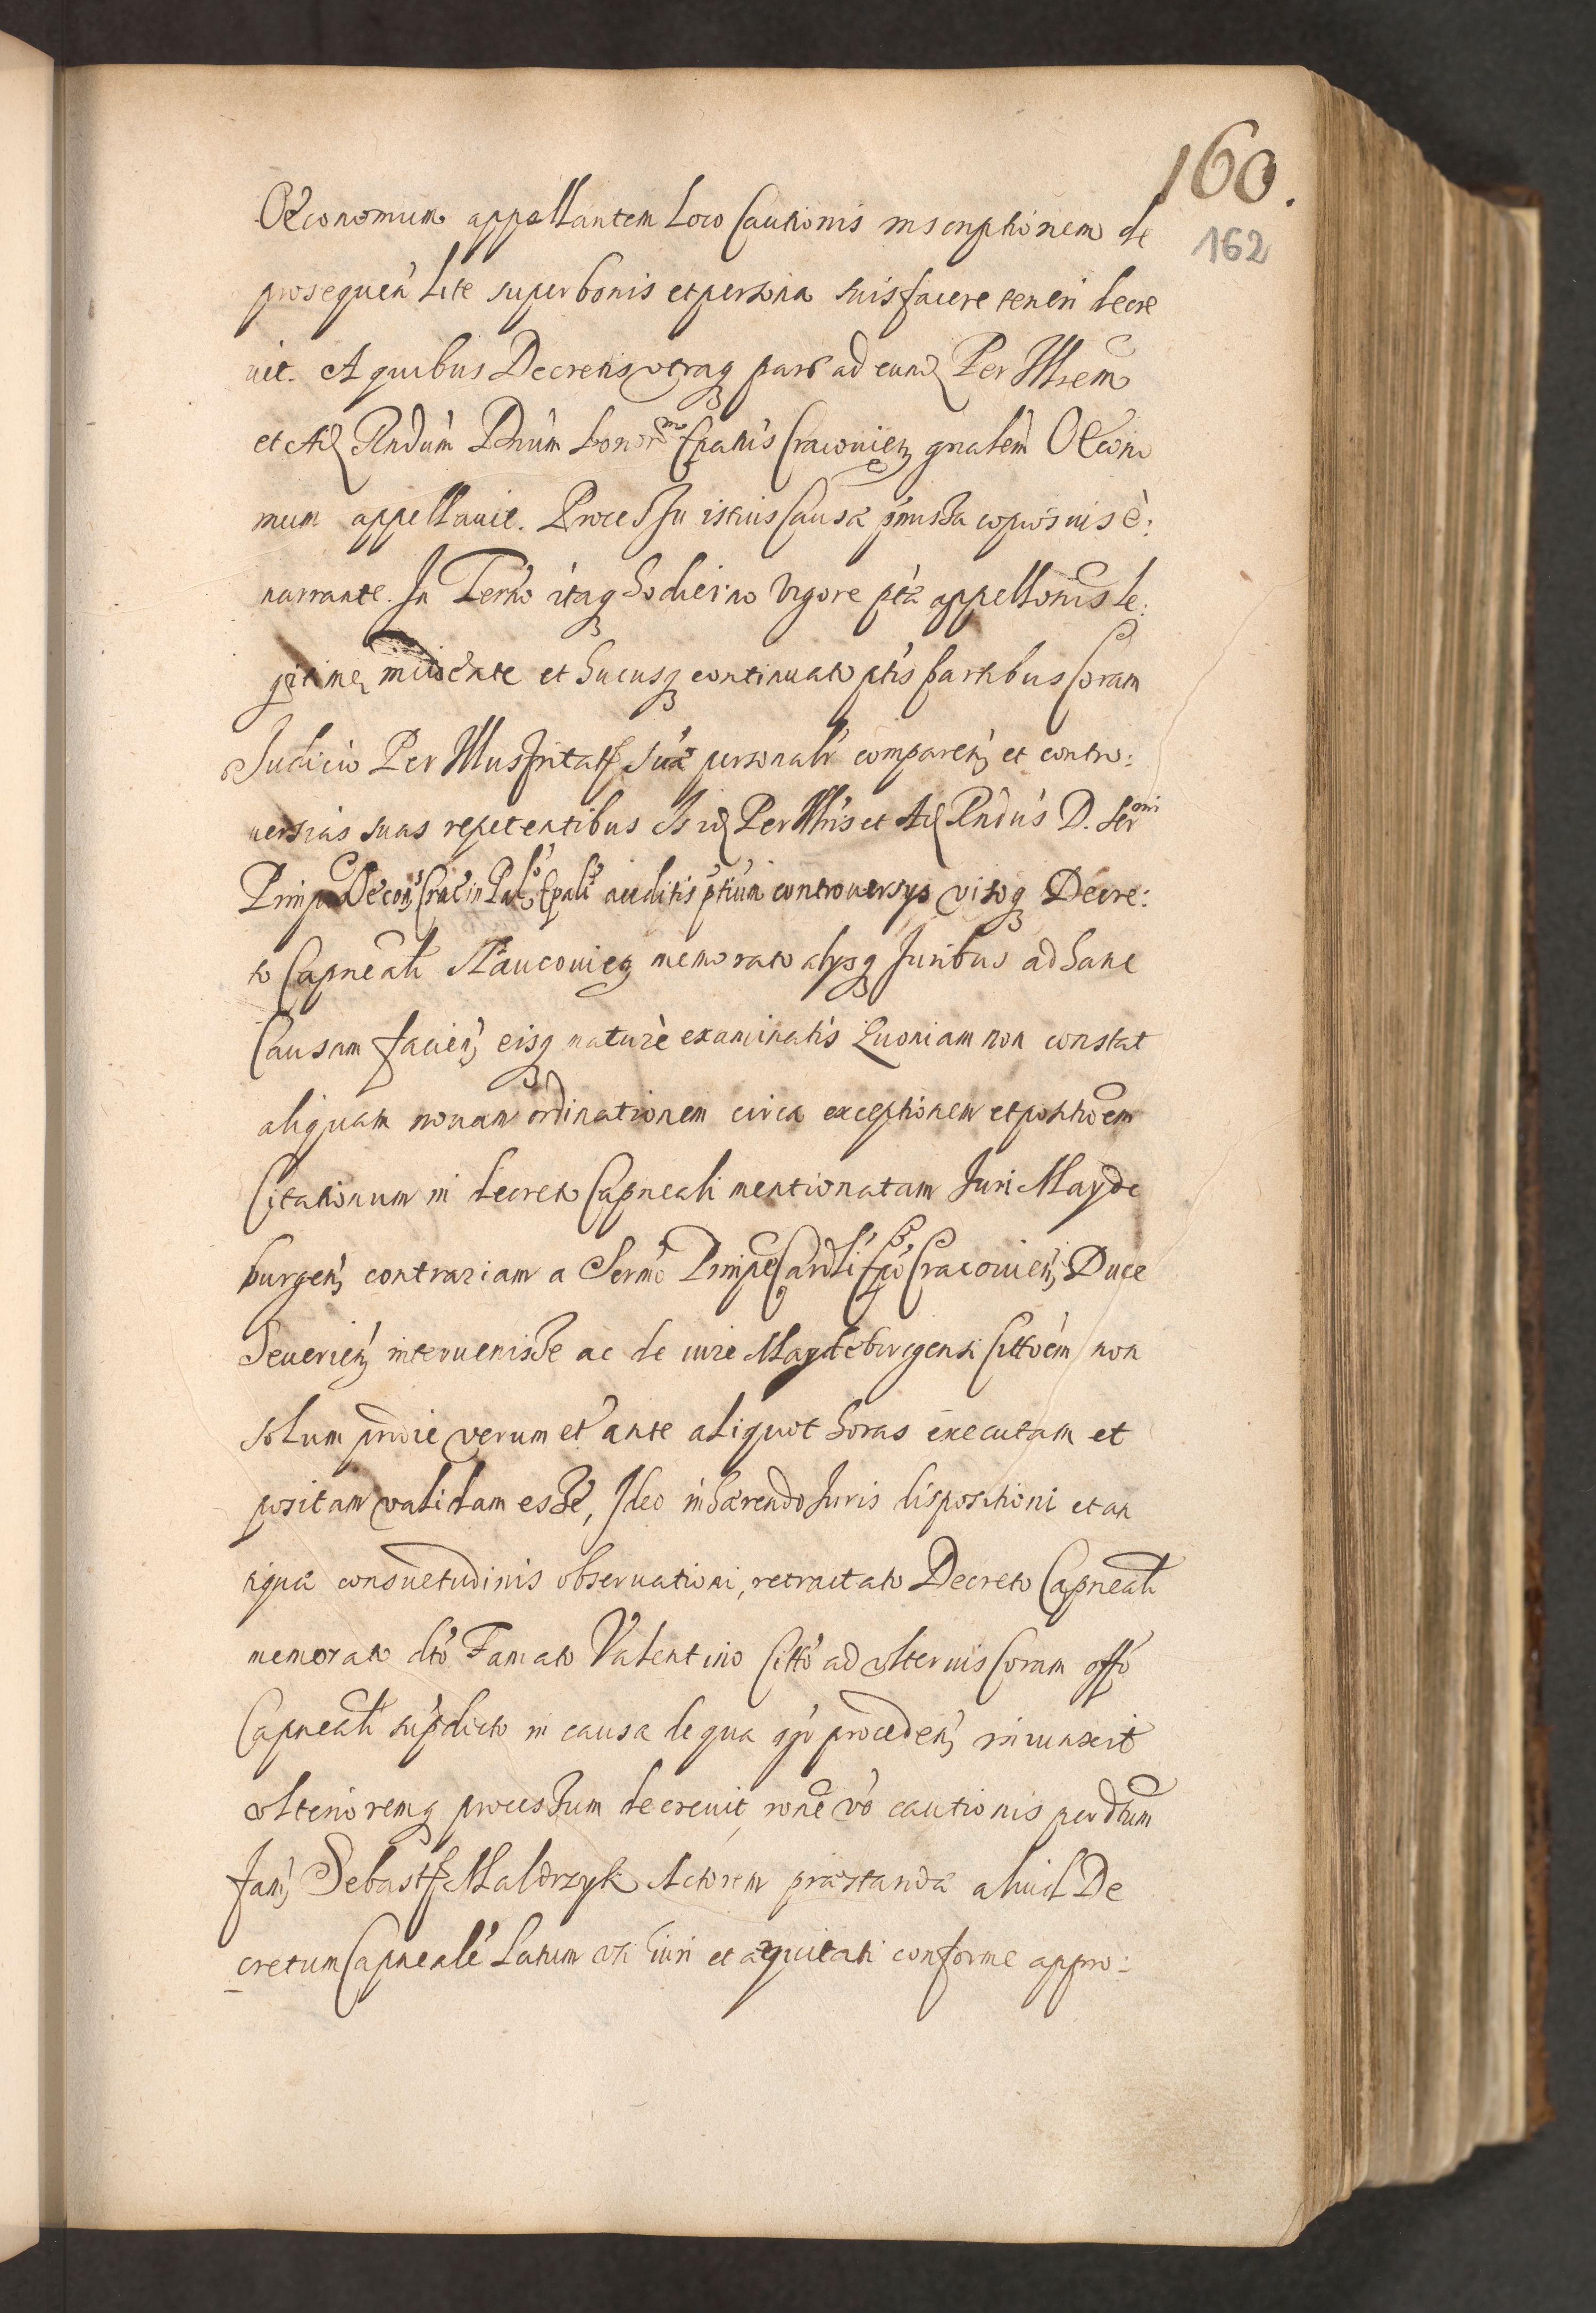 160.
162
Œconomum appellantem loco Cautionis inscriptionem de
prosequen̄ lite super bonis et persona suis facere teneri decre
uit. A quibus Decretis vtraq̃ pars ad eund̃ Per Illrem
et Ad̃ Rndum Dnum bonor̃ Epatus Cracouien̄ gnalem Œcono
mum appellauit. Processu istius Causæ pmissa copiosius è:
narrante. In Termo itaq̃ hodierno vigore ptæ appellonis le:
gitime incidente et hucusq̃ continuato ptis partibus Coram
Judicio Per Illustritatis Suæ personalr comparen̄ et contro:
uersias suas repetentibus Is id̃ Per Illris et Ad̃ Rndus D. Sermi
Principis Œcon̄ Crac in Palo Epali auditis ptium controuersys visoq̃ Decre:
to Capneali memorato alysq̃ Juribus ad hanc
Causam facien̄ eisq̃ maturè examinatis Quoniam non constat
aliquam nouam ordinationem circa exceptionem et positioem
Citationum in decreto Capneali mentionatam Juri Mayde
burgen̄ contrariam a Sermo Principe Cardli Epo Cracouien̄ Duce
Seuerien̄ interuenisse ac de iure Maydeburgensi Cittoem non
solum pridie verum et ante aliquot horas executam et
positam validam esse, Ideo inhærendo Juris dispositioni et an
tiquæ consuetudinis obseruationi, retractato Decreto Capneali
memorato dto Famato Valentino Citto ad vlterius Coram offo
Capneali supdicto in causa de qua agr proceden̄ iniunxit
vlterioremq̃ processum decreuit, rone vo cautionis per dtum
Fam̄ Sebast Maldrzyk Actorem præstandæ aliud De
cretum Capneale latum vti iuri et æquitati conforme appro: